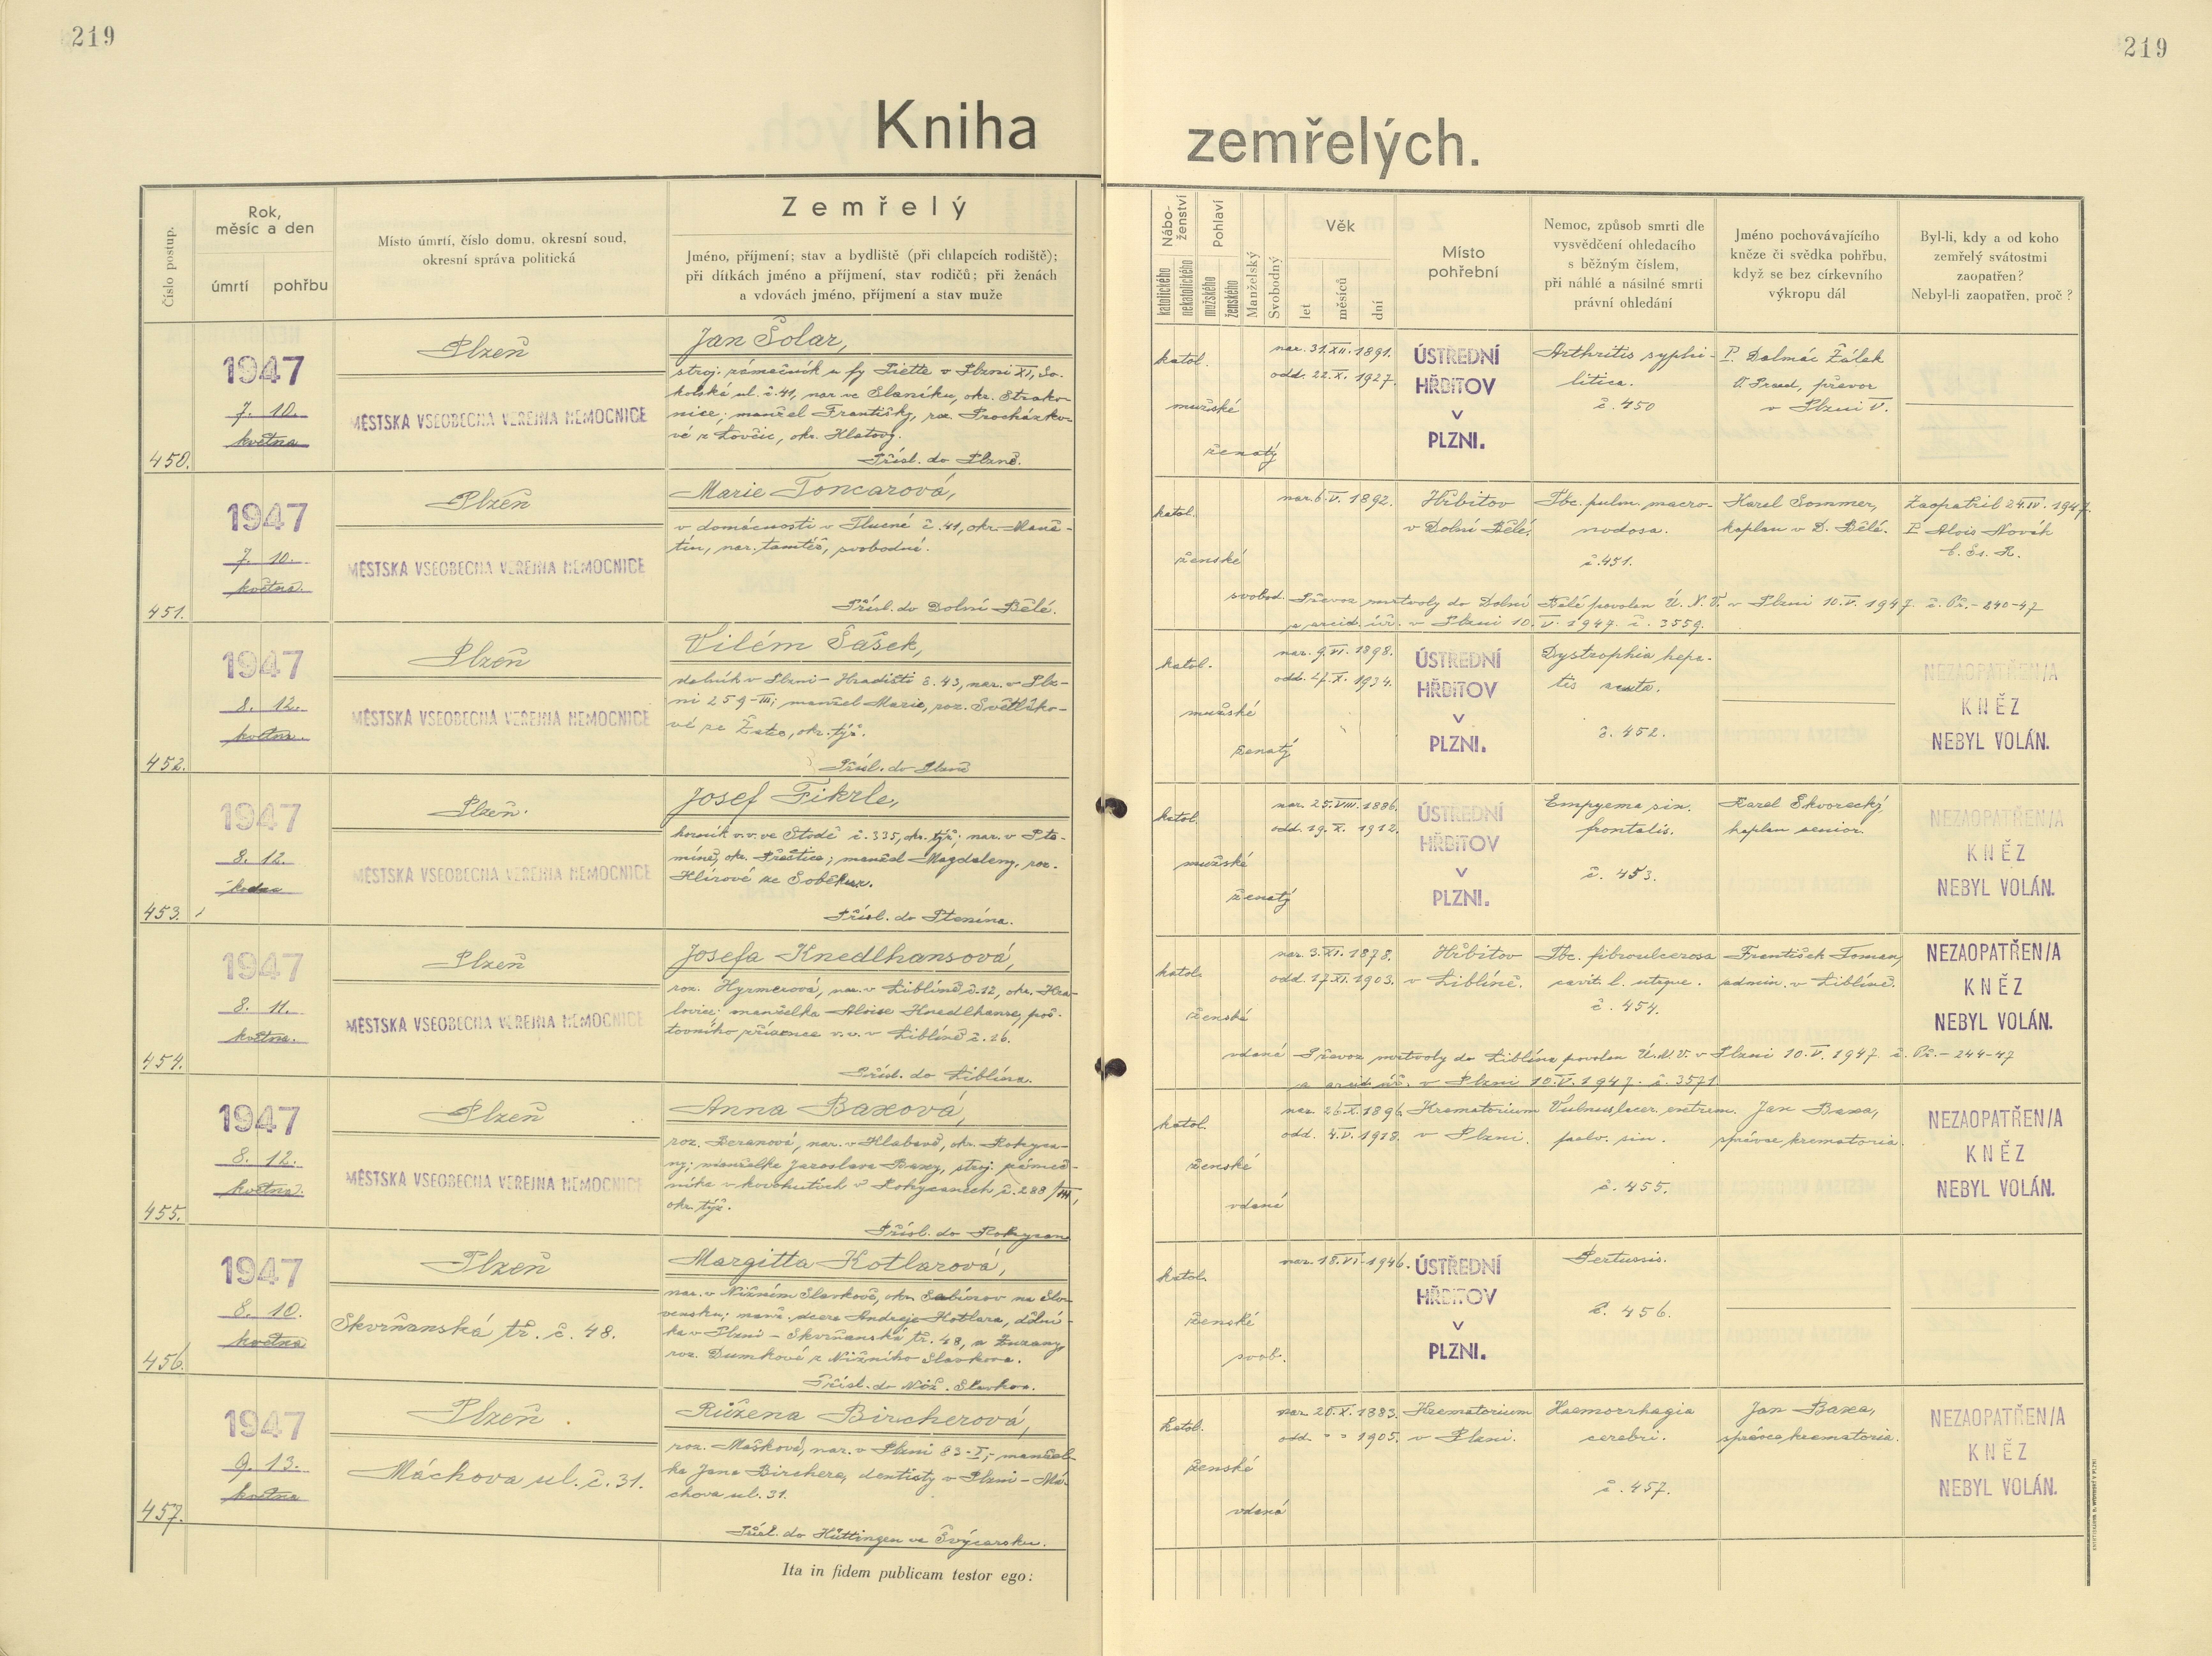 219
219
Kniha zemřelých.
Číslo postup.
Rok,
měsíc a den
úmrtí
pohřbu
Místo úmrtí, číslo domu, okresní soud,
okresní správa politická
Zemřelý
Jméno, příjmení; stav a bydliště (při chlapcích rodiště);
při dítkách jméno a příjmení, stav rodičů; při ženách
a vdovách jméno, příjmení a stav muže
Nábo-
ženství
katolického
nekatolického
Pohlaví
mužského
ženského
Manželský
Svobodný
Věk
let
měsíců
dní
Místo
pohřební
Nemoc, způsob smrti dle
vysvědčení ohledacího
s běžným číslem,
při náhlé a násilné smrti
právní ohledání
Jméno pochovávajícího
kněze či svědka pohřbu,
když se bez církevního
výkropu dál
Byl-li, kdy a od koho
zemřelý svátostmi
zaopatřen?
Nebyl-li zaopatřen, proč?
450.
1947
7. 10.
května
Plzeň
MĚSTSKÁ VŠEOBECNÁ VEŘEJNÁ NEMOCNICE
Jan Šolar,
stroj. zámečník u fy Piette v Plzni XI, So-
kolská ul. č. 41, nar. ve Slaníku, okr. Strako-
nice; manžel Františky, roz. Procházko-
vé z Lovčic, okr. Klatovy.
Přísl. do Plzně.
katol.
mužské
ženatý
nar. 31.XII.1891.
odd. 22.X.1927.
ÚSTŘEDNÍ
HŘBITOV
V
PLZNI.
Arthritis syphi-
litica.
č. 450
P. Dalmác Žálek
O. Praed., převor
v Plzni V.
451.
1947
7. 10.
května.
Plzeň
MĚSTSKÁ VŠEOBECNÁ VEŘEJNÁ NEMOCNICE
Marie Toncarová,
v domácnosti v Tlucné č. 41, okr. Maně-
tín, nar. tamtéž, svobodná.
Přísl. do Dolní Bělé.
katol.
ženské
svobod.
nar. 6.V.1892.
Hřbitov
v Dolní Bělé.
Tbc. pulm. macro-
nodosa.
č. 451.
Karel Sommer,
kaplan v D. Bělé.
Zaopatřil 24.IV.1947.
P. Alois Novák
C. Ss. R.
Převoz mrtvoly do Dolní Bělé povolen Ú. N. V. v Plzni 10.V.1947. č. Př.-240-47
a arcid. úř. v Plzni 10.V.1947. č. 3559.
452.
1947
8. 12.
května.
Plzeň
MĚSTSKÁ VŠEOBECNÁ VEŘEJNÁ NEMOCNICE
Vilém Šašek,
dělník v Plzni-Hradišti č. 43, nar. v Plz-
ni 259-III; manžel Marie, roz. Světlíko-
vé ze
Přísl. do Plzně
katol.
mužské
ženatý
nar. 9.VI.1898.
odd. 27.X.1934.
ÚSTŘEDNÍ
HŘBITOV
V
PLZNI.
Dystrophia hepa-
tis acuta.
č. 452.
NEZAOPATŘEN/A
KNĚZ
NEBYL VOLÁN.
453.
1947
8. 12.
Plzeň.
MĚSTSKÁ VŠEOBECNÁ VEŘEJNÁ NEMOCNICE
Josef Fikrle,
horník v.v. ve Stodě č. 335, okr. týž; nar. v Pte-
níně, okr. Přeštice; manžel Magdaleny, roz.
Hlírové ze Soběkur.
Přísl. do Ptenína.
katol.
mužské
ženatý
nar. 25.VIII.1886.
odd. 19.X.1912.
ÚSTŘEDNÍ
HŘBITOV
V
PLZNI.
Empyema sin.
frontalis.
č. 453.
Karel Skvorecký
kaplan senior.
NEZAOPATŘEN/A
KNĚZ
NEBYL VOLÁN.
454.
1947
8. 11.
května.
Plzeň
MĚSTSKÁ VŠEOBECNÁ VEŘEJNÁ NEMOCNICE
Josefa Knedlhansová,
roz. Hyrmerová, nar. v Liblíně č. 12, okr. Kra-
lovice; manželka Aloise Knedlhanse, poš-
tovního zřízence v.v. v Liblíně č. 26.
Přísl. do Liblína.
katol.
ženské
vdaná
nar. 3.XI.1878.
odd. 17.XI.1903.
Hřbitov
v Liblíně.
Tbc. fibroulcerosa
cavit. l. utrque.
č. 454.
František Toman,
admin. v Liblíně.
NEZAOPATŘEN/A
KNĚZ
NEBYL VOLÁN.
Převoz mrtvoly do Liblína povolen Ú.N.V. v Plzni 10.V.1947 č. Př.-244-47
a arcid. úř. v Plzni 10.V.1947. č. 3571.
455.
1947
8. 12.
května.
Plzeň
MĚSTSKÁ VŠEOBECNÁ VEŘEJNÁ NEMOCNICE
Anna Baxová,
roz. Beranová, nar. v Hlabavě, okr. Rokyca-
ny; manželka Jaroslava Baxy, stroj. zámeč-
níka v kovohutích v Rokycanech č. 288/III,
okr. týž.
Přísl. do Rokycan
katol.
ženské
vdaná
nar. 26.X.1896.
odd. 4.V.1918.
Krematorium
v Plzni.
Vulnus lacer. extrem.
č. 455.
Jan Baxa,
správce krematoria.
NEZAOPATŘEN/A
KNĚZ
NEBYL VOLÁN.
456.
1947
8. 10.
května
Plzeň
Skvrňanská tř. č. 48.
Margitta Kotlarová,
nar. v Nižním Slavkově, okr. Sabinov na Slo-
vensku; manž. dcera Andreje Kotlara, dělní-
ka v Plzni - Skvrňanská tř. 48, a Zuzany,
roz. Dumkové z Nižního Slavkova.
Přísl. do Niž. Slavkov.
katol.
ženské
svob.
nar. 18.VI.1946.
ÚSTŘEDNÍ
HŘBITOV
V
PLZNI.
Pertussis.
č. 456.
457.
1947
9. 13.
května
Plzeň
Máchova ul. č. 31.
Růžena Bircherová,
roz. Mašková, nar. v Plzni 83-I; manžel-
ka Jana Birchera, dentisty v Plzni - Má-
chova ul. 31.
Přísl. do Hüttingen ve Švýcarsku.
katol.
ženské
vdaná
nar. 20.X.1883.
odd. " " 1905.
Krematorium
v Plzni.
Haemorrhagia
cerebri.
č. 457.
Jan Baxa,
správce krematoria.
NEZAOPATŘEN/A
KNĚZ
NEBYL VOLÁN.
Ita in fidem publicam testor ego: